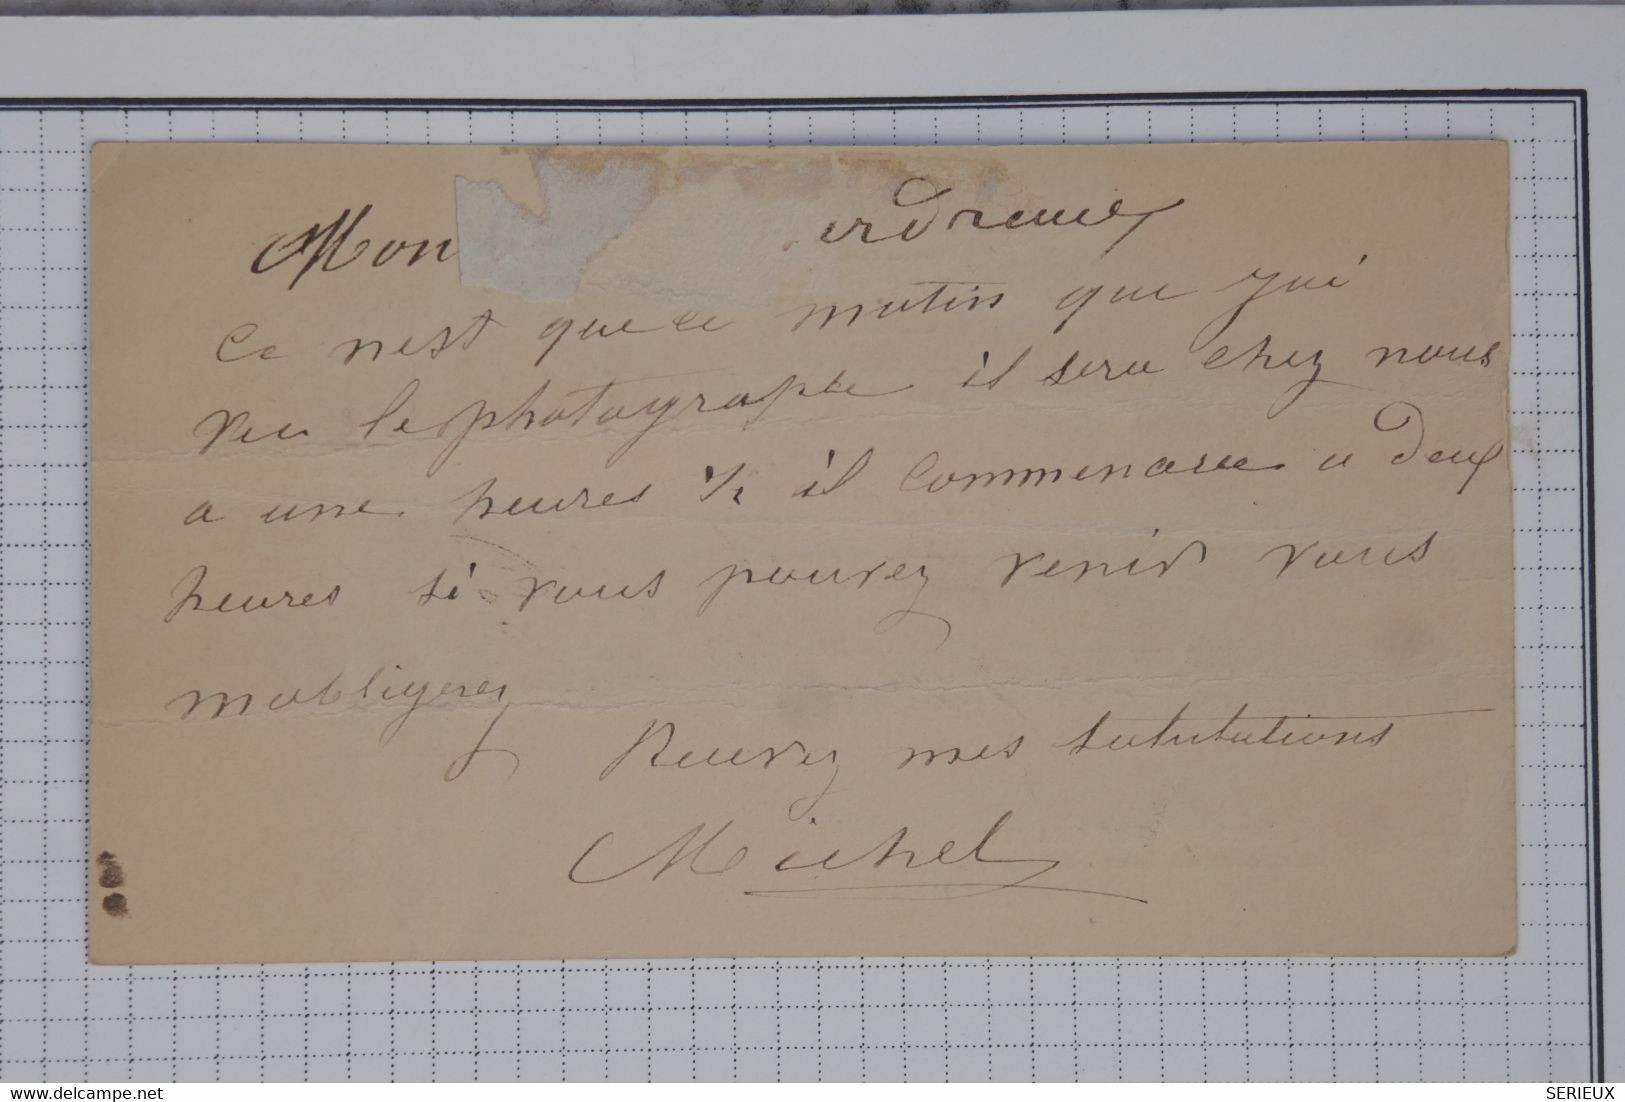 Mon
Ce nest que ce matin que jai
vu le photographe il sera chez nous
a une heures ½ il commencera a deux
heures si vous pouvez venir vous
mobligerez
Recevez mes salutations
Michel
www.delcampe.net
SERIEUX